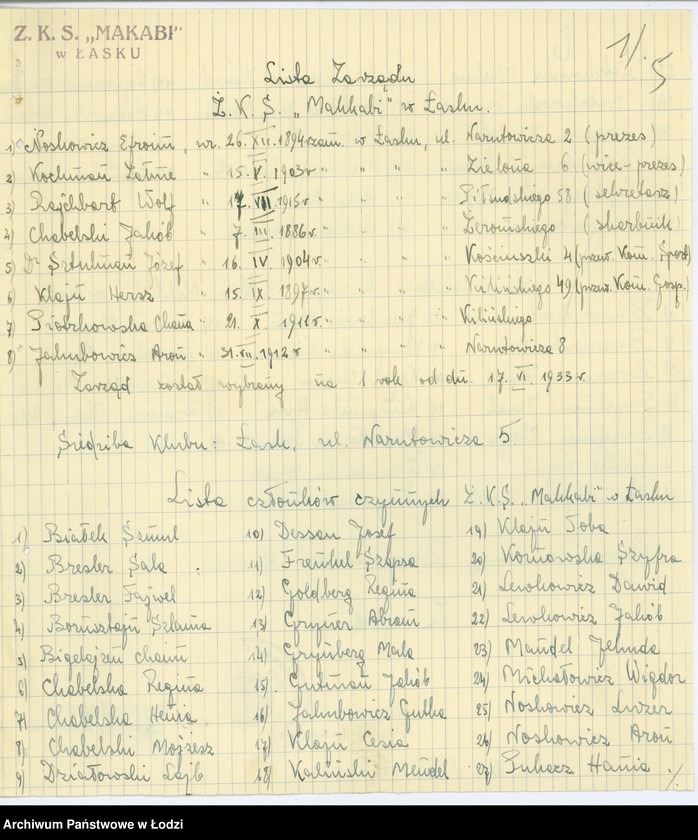 Z. K. S. „MAKABI"
w ŁASKU
1/5
Lista Zarządu
Ż. K. S. „Makkabi" w Łasku.
1) Noskowicz Efroim, ur. 26.XII.1894r zam. w Łasku, ul. Narutowicza 2 (prezes)
2) Kochman Zalme " 15.V.1903r " " " Zielona 6 (wice-prezes)
3) Rajchbart Wolf " 17.VII.1915r " " " Piłsudskiego 58 (sekretarz)
4) Chabelski Jakób " 7.III.1886r. " " " Żeromskiego (skarbnik)
5) Dr Sztulman Józef " 16.IV.1904r " " " Kościuszki 4 (przew. Kom. Sport)
6) Klajn Hersz " 15.IX.1897r " " " Kilińskiego 49 (przew. Kom. Gosp.)
7) Piotrkowska Chana " 21.X.1911r. " " " Kilińskiego
8) Jakubowicz Aron " 31.VII.1912r " " " Narutowicza 8
Zarząd został wybrany na 1 rok od dn. 17.VI.1933r.
Siedziba Klubu: Łask, ul. Narutowicza 5
Lista członków czynnych Ż.K.S. „Makkabi" w Łasku
1) Białek Szmul
2) Bresler Sala
3) Bresler Fajwel
4) Bornsztajn Szlama
5) Bigelajzen Chaim
6) Chabelska Regina
7) Chabelska Henia
8) Chabelski Mojżesz
9) Działowski Lajb
10) Dessau Josef
11) Frenkel Szapsa
12) Goldberg Regina
13) Gryner Abram
14) Grynberg Mala
15) Gutman Jakób
16) Jakubowicz Gutka
17) Klajn Cesia
18) Kaliński Mendel
19) Klajn Toba
20) Kornowska Szyfra
21) Lewkowicz Dawid
22) Lewkowicz Jakób
23) Mandel Jehuda
24) Michałowicz Wigdor
25) Noskowicz Luzer
26) Noskowicz Aron
27) Pukacz Hania
Archiwum Państwowe w Łodzi